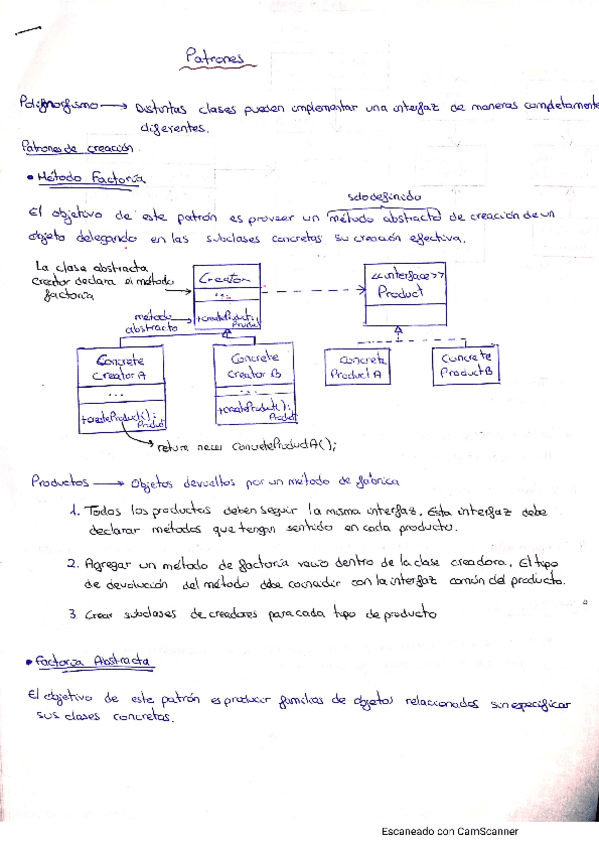 Patrones
Polimorfismo → Distintas clases pueden implementar una interfaz de maneras completamente
diferentes.
Patrones de creación
• Método Factoría
solo definido
El objetivo de este patrón es proveer un método abstracto de creación de un
objeto delegando en las subclases concretas su creación efectiva.
La clase abstracta
Creator declara el método
factoría
Creator
...
+createProduct():
Product
<<interface>>
Product
método
abstracto
Concrete
Creator A
...
+createProduct();
Product
Concrete
Creator B
...
+createProduct();
Product
Concrete
Product A
Concrete
Product B
return new ConcreteProductA();
Productos → Objetos devueltos por un método de fábrica
1. Todos los productos deben seguir la misma interfaz. Esta interfaz debe
declarar métodos que tengan sentido en cada producto.
2. Agregar un método de factoría vacío dentro de la clase creadora. El tipo
de devolución del método debe coincidir con la interfaz común del producto.
3. Crear subclases de creadores para cada tipo de producto
• Factoría Abstracta
El objetivo de este patrón es producir familias de objetos relacionados sin especificar
sus clases concretas.
Escaneado con CamScanner